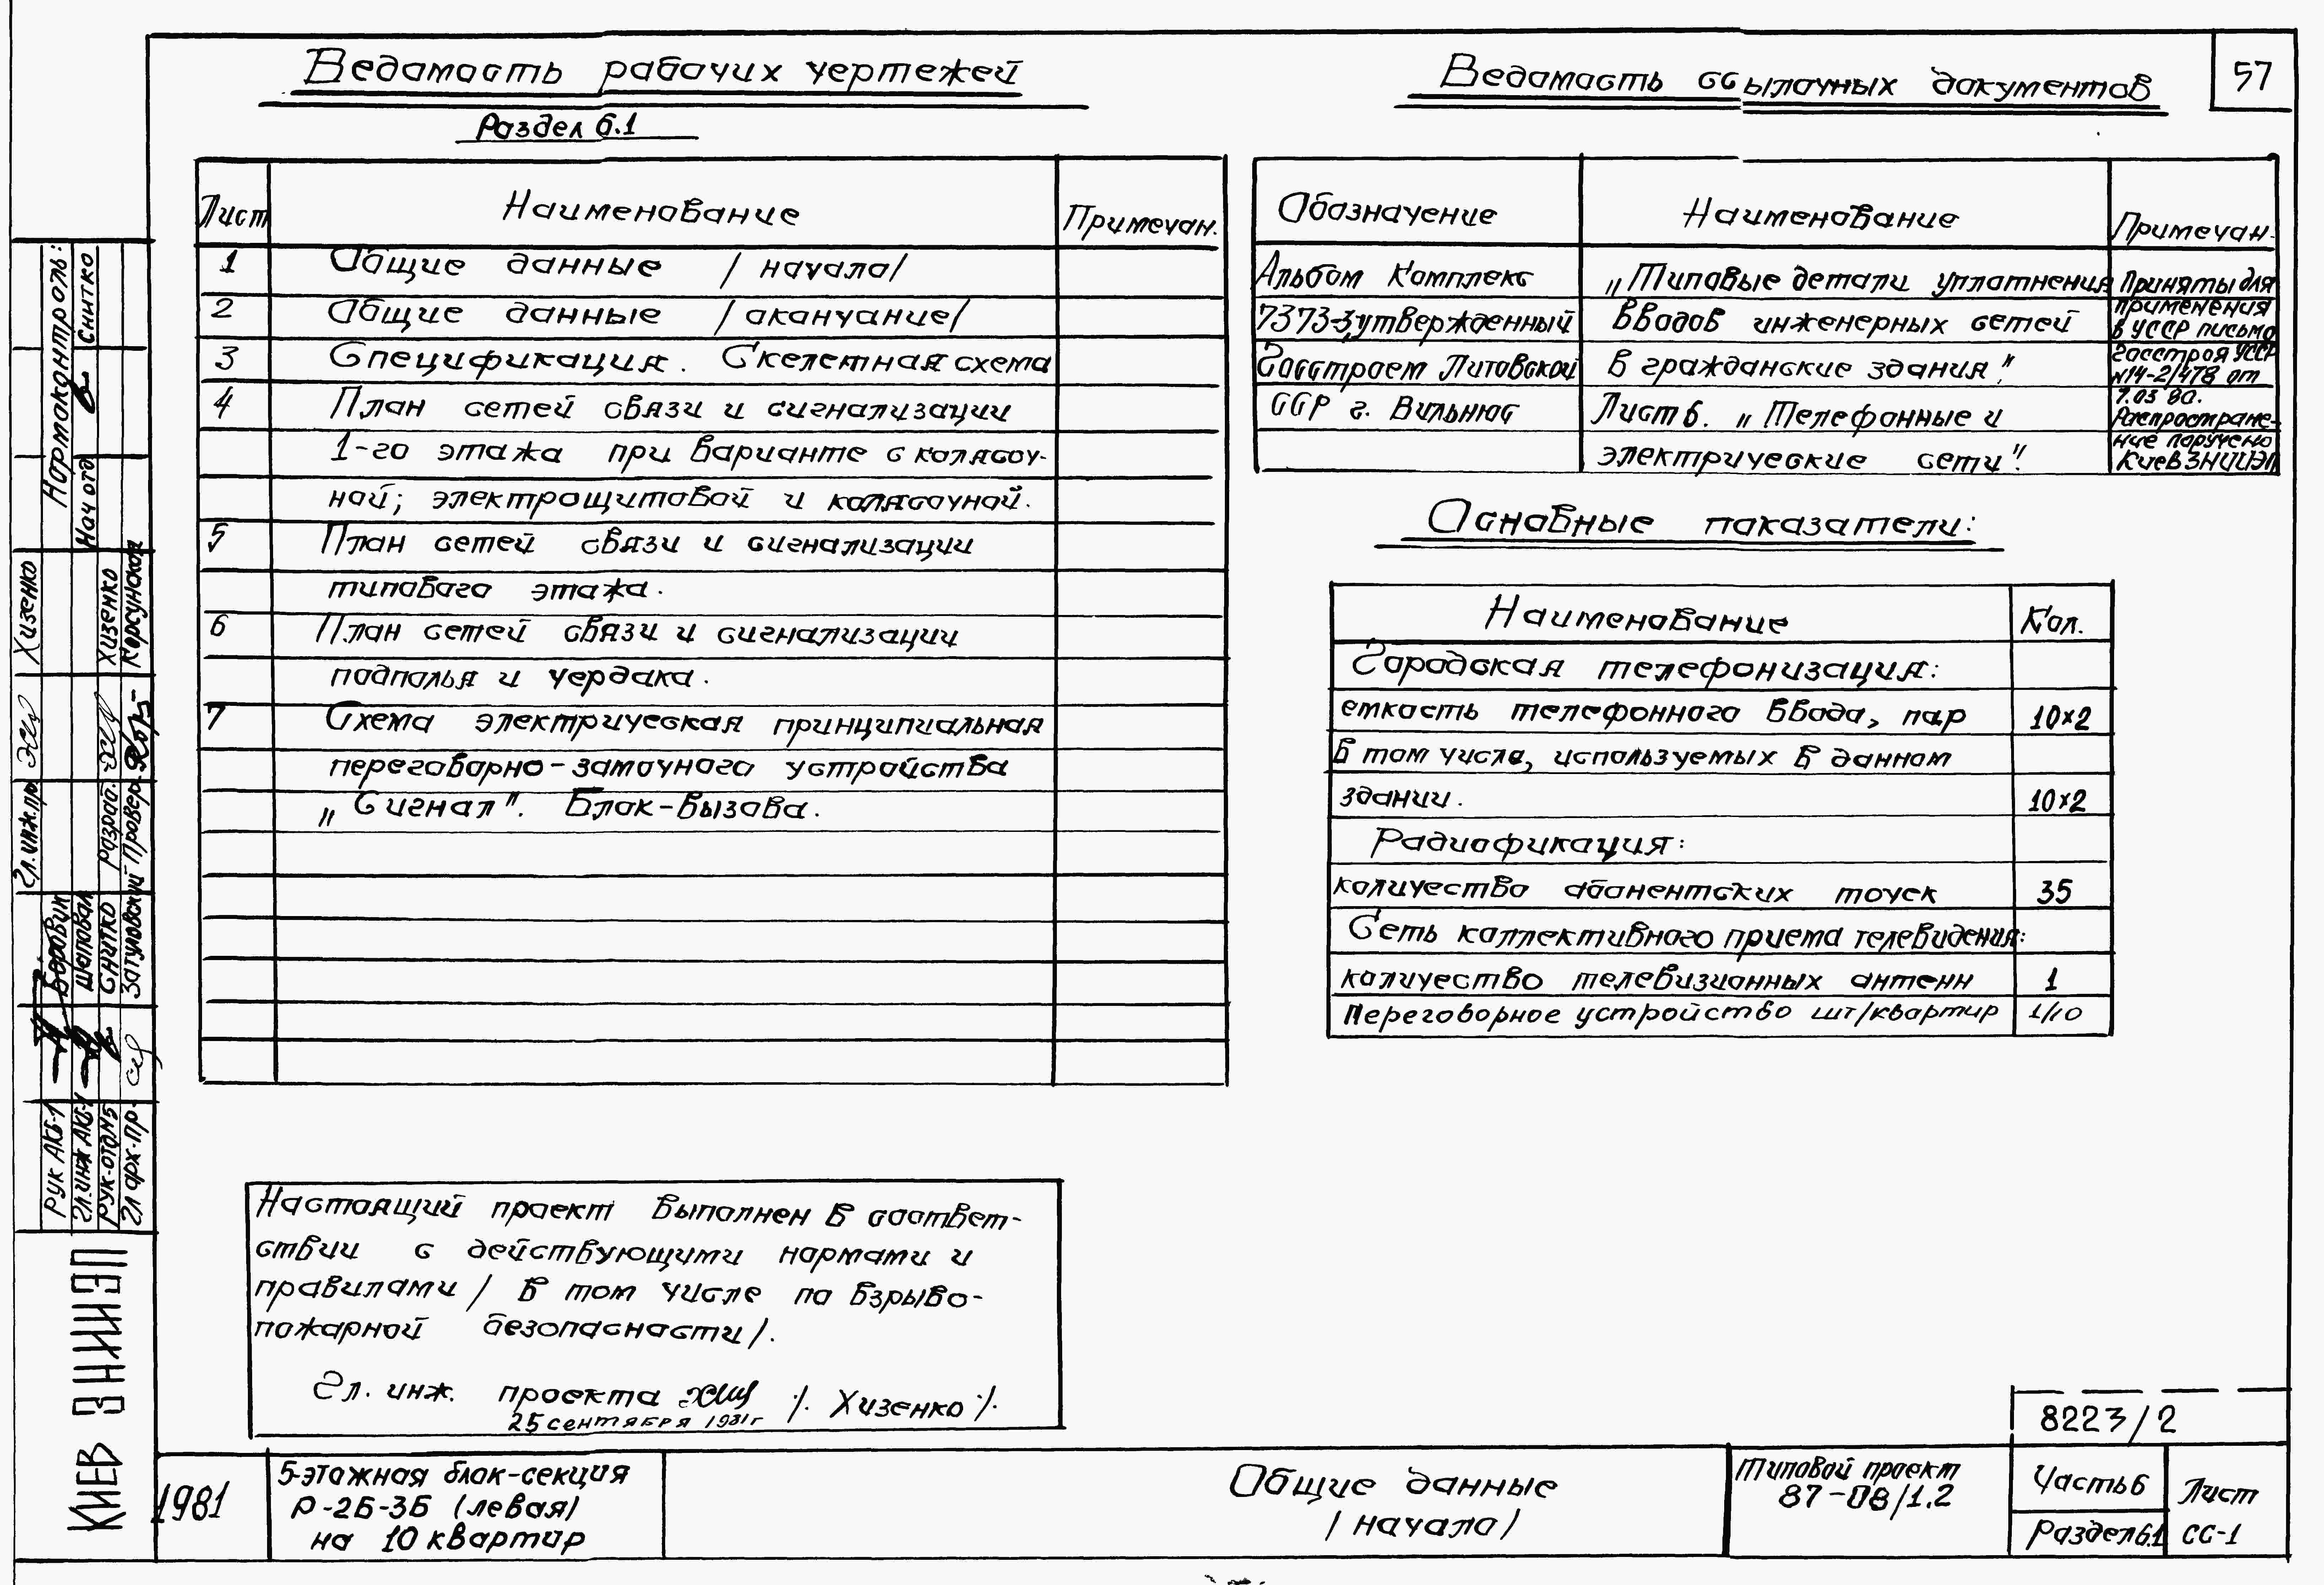 57
Ведомость рабочих чертежей
Раздел 6.1
Лист Наименование Примечан.
1 Общие данные /начало/
2 Общие данные /окончание/
3 Спецификация. Скелетная схема
4 План сетей связи и сигнализации
1-го этажа при варианте с колясоч-
ной; электрощитовой и колясочной.
5 План сетей связи и сигнализации
типового этажа.
6 План сетей связи и сигнализации
подполья и чердака.
7 Схема электрическая принципиальная
переговорно-замочного устройства
„Сигнал". Блок-вызова.
Ведомость ссылочных документов
Обозначение Наименование Примечан.
Альбом Комплекс
7373-3, утвержденный
Госстроем Литовской
ССР г. Вильнюс
„Типовые детали уплотнения
вводов инженерных сетей
в гражданские здания".
Лист 6. „Телефонные и
электрические сети".
Приняты для
применения
в УССР письмо
Госстроя УССР
№14-2/478 от
7.03 80.
Распростране-
ние поручено
КиевЗНИИЭП
Основные показатели:
Наименование Кол.
Городская телефонизация:
емкость телефонного ввода, пар 10×2
В том числе, используемых в данном
здании. 10×2
Радиофикация:
количество абонентских точек 35
Сеть коллективного приема телевидения:
количество телевизионных антенн 1
Переговорное устройство шт/квартир 1/10
Настоящий проект выполнен в соответ-
ствии с действующими нормами и
правилами / в том числе по взрыво-
пожарной безопасности/.
Гл. инж. проекта /. Хизенко ./.
25 сентября 1981г
Нормоконтроль:
Нач отд Снитко
Гл.инж.пр. Хизенко
Разраб. Хизенко
Провер. Корсунская
Рук АКБ-1 Боровик
Гл.инж АКБ-1 Шаповал
Рук-отд№5 Снитко
Гл арх-пр. Затуловский
КИЕВ ЗНИИЭП
1981
5-этажная блок-секция
Р-2Б-3Б (левая)
на 10 квартир
Общие данные
/начало/
Типовой проект
87-08/1.2
8223/2
Часть 6
Раздел 6.1
Лист
СС-1